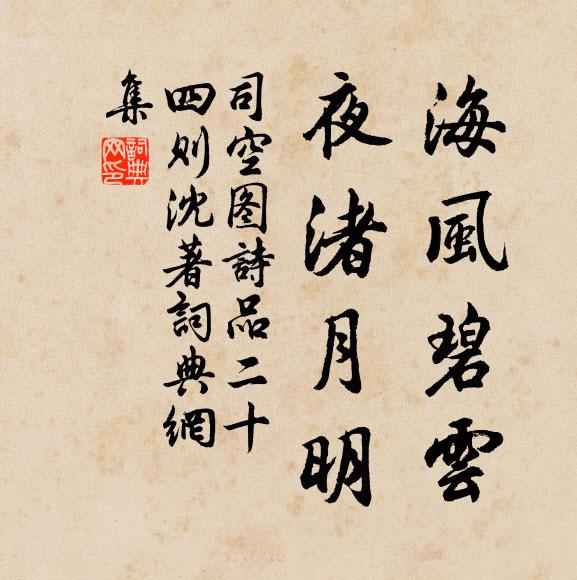 海風碧雲
夜渚月明
司空图詩品二十
四则沈著詞典網
集
詞典
网印